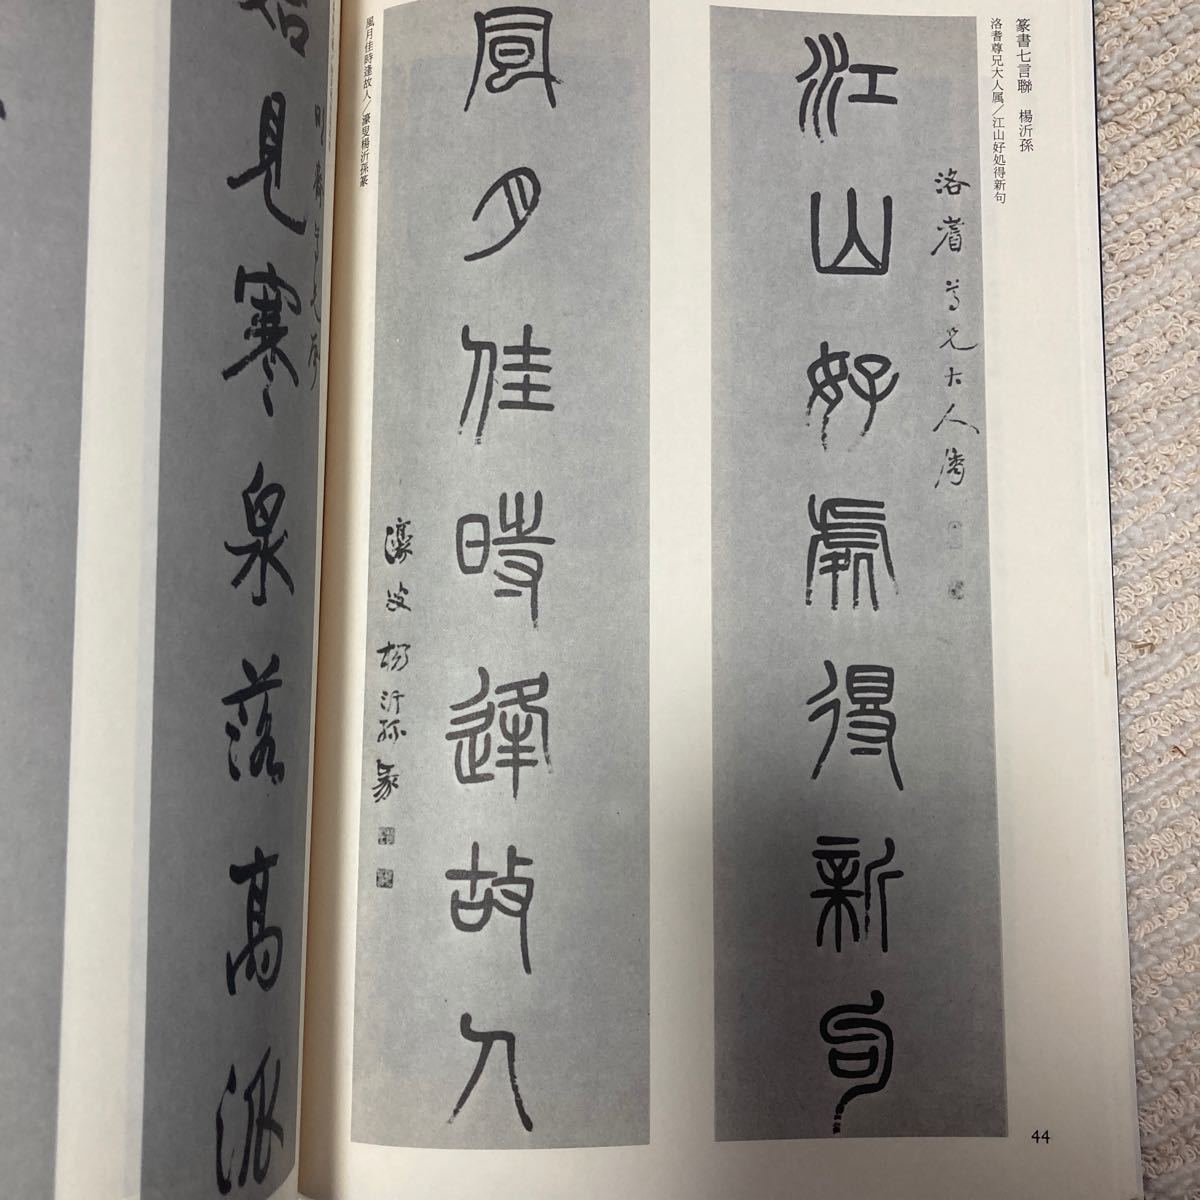 篆書七言聯　楊沂孫
洛耆尊兄大人属／江山好処得新句
洛耆尊兄大人属
江山好處得新句
風月佳時逢故人／濠叟楊沂孫篆
風月佳時逢故人
濠叟楊沂孫篆
見寒泉落高派
44